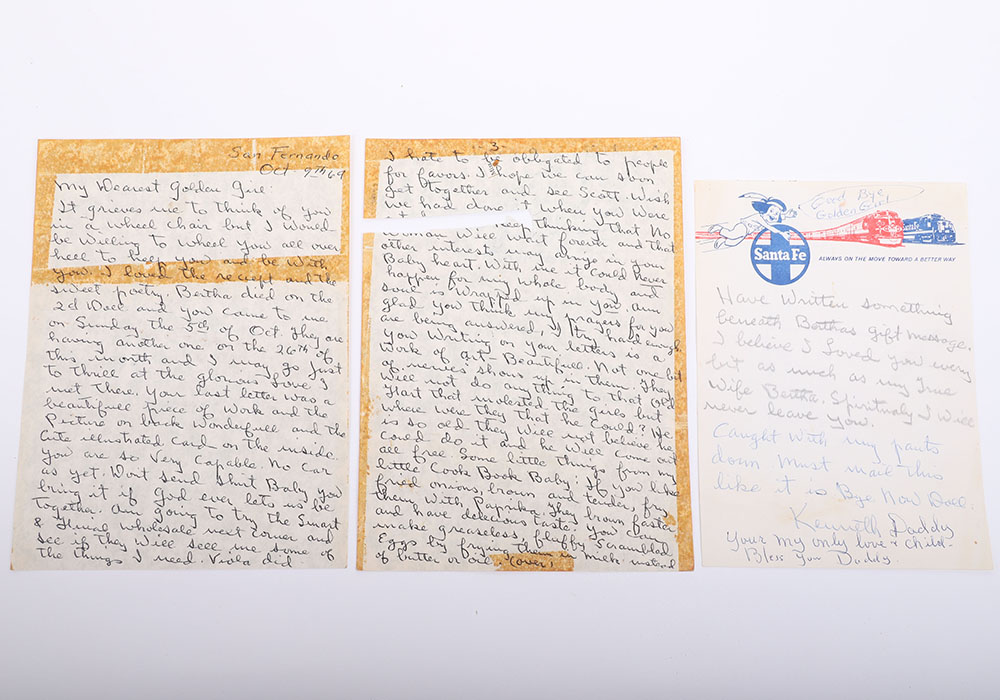 San Fernando
Oct 9th 69
My Dearest Golden Girl:
It grieves me to think of you
in a wheel chair but I would
be willing to wheel you all over
hell to keep you and be with
you. I loved the receipt and the
sweet poetry. Bertha died on the
2d Wed. and you came to me
on Sunday the 5th of Oct. They are
having another one on the 26th of
this month and I may go just
to thrill at the glorious love I
met there. Your last letter was a
beautifull piece of work and the
Picture on back Wonderfull and the
Cute illustrated Card on the inside.
you are so very Capable. No Car
as yet. Don't send shirt Baby you
bring it if God ever let us be
together. Am going to try the Smart
& Final wholesale next corner and
see if they will sell me some of
the things I need. Viola did
3
I hate to be obligated to people
for favors. I hope we can soon
get together and see Scott. Wish
we had done it when you were
keep thinking that No
Woman Will Wait forever and that
other interests may arise in your
Baby heart. With me it could never
happen for my whole body and
soul is wrapped up in you. am
glad you think my prayers for you
are being answered, I try hard enough.
you writing on your letters is a
Work of art - Beautifull. Not one bit
of nerves shows in them. They
Will not do anything to that old
Hart that molested the girls but
where were they that he could? He
is so old they will not believe he
could do it and he will come out
all free. Some little things from my
little Cook Book Baby: If you like
fried onions, brown and tender, fry
them with Paprika. They brown faster
and have delecious taste. You can
make greaseless, fluffy Scrambled
Eggs by frying them in milk instead
of butter or oil. (over)
Good Bye
Golden Girl
Santa Fe
Santa Fe
ALWAYS ON THE MOVE TOWARD A BETTER WAY
Have written something
beneath Berthas gift message.
I believe I loved you every
bit as much as my True
Wife Bertha. Spiritualy I will
never leave you.
Caught with my pants
down. Must mail this
like it is Bye Now Doll.
Kenneth Daddy
Your my only love & child-
Bless you Daddy.